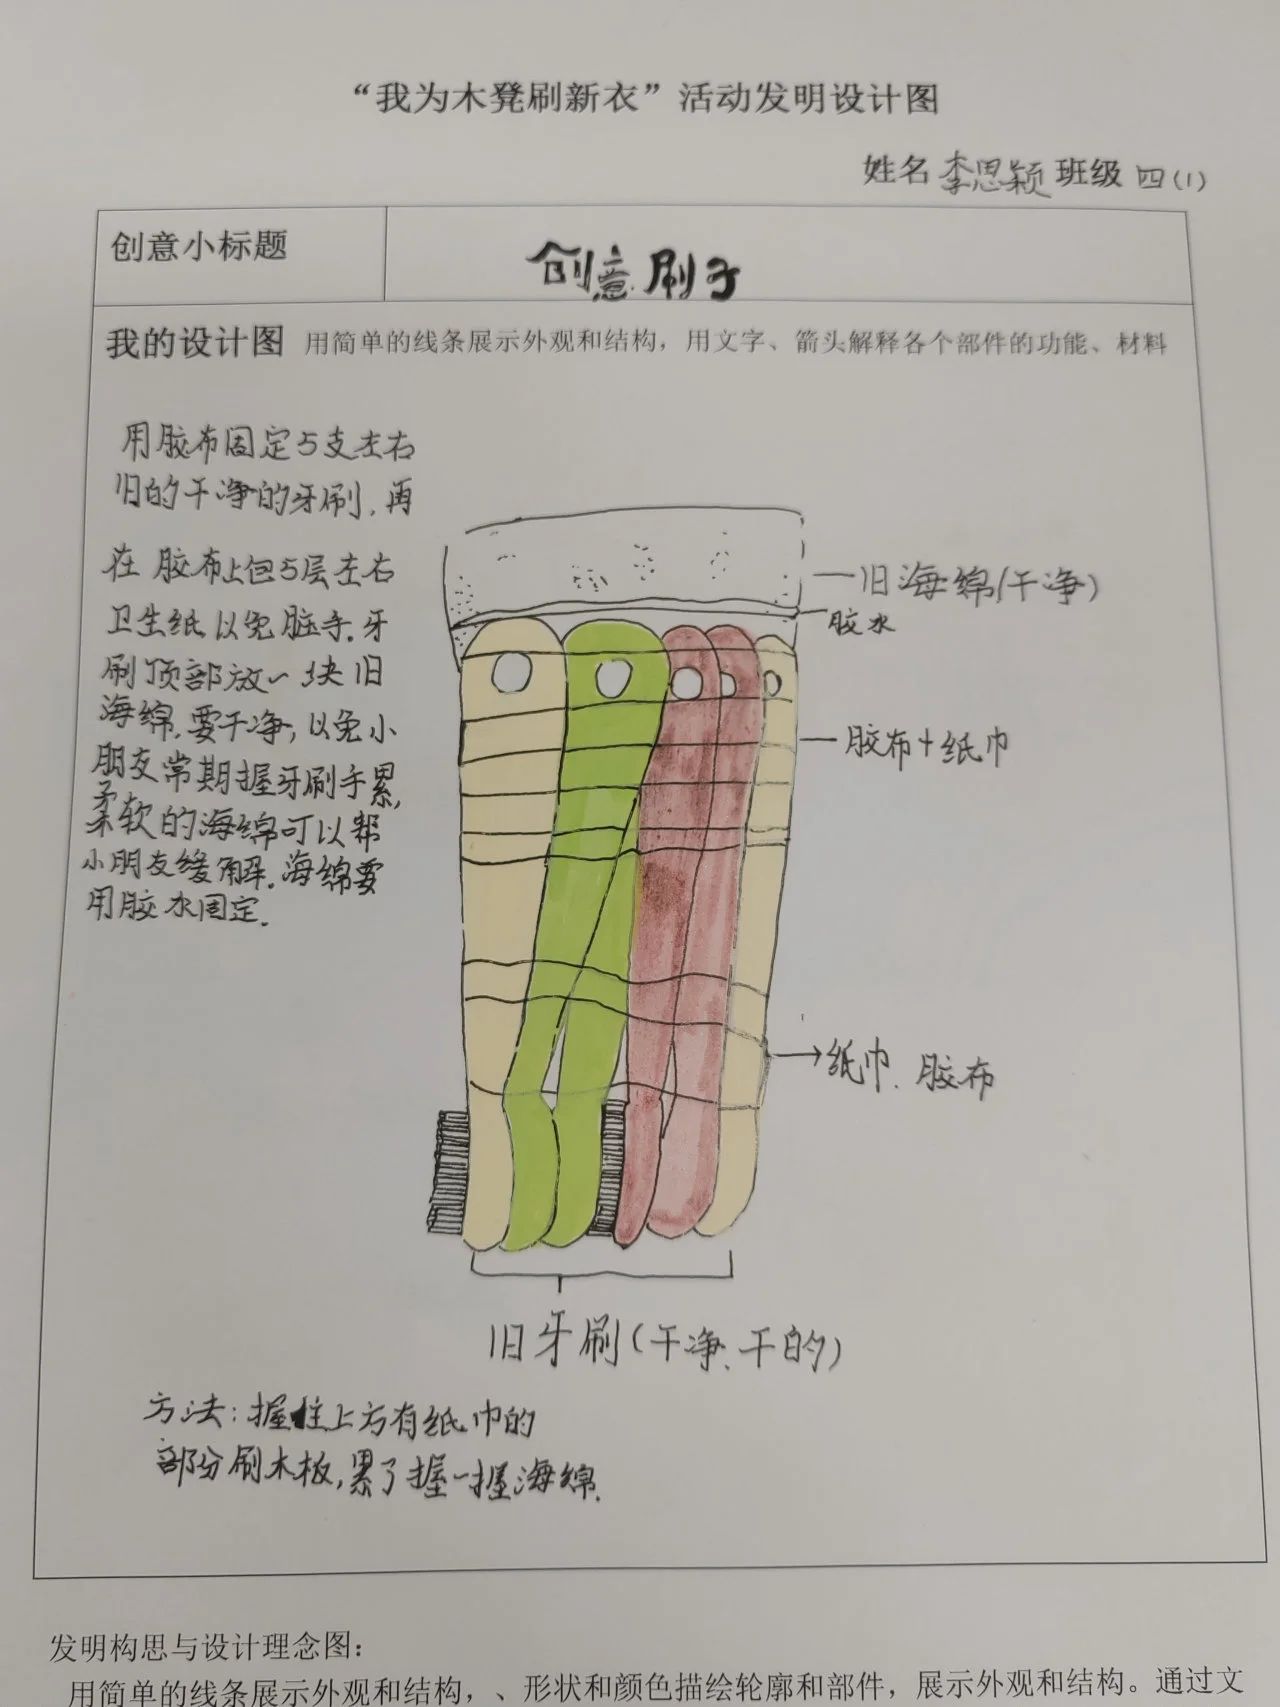 “我为木凳刷新衣”活动发明设计图
姓名 李思颖 班级 四(1)
创意小标题
创意刷子
我的设计图 用简单的线条展示外观和结构，用文字、箭头解释各个部件的功能、材料
用胶布固定5支左右
旧的干净的牙刷，再
在胶布上包5层左右
卫生纸以免脏手.牙
刷顶部放一块旧
海绵,要干净,以免小
朋友常期握牙刷手累,
柔软的海绵可以帮
小朋友缓解.海绵要
用胶水固定.
旧海绵(干净)
胶水
胶布+纸巾
纸巾、胶布
旧牙刷(干净、干的)
方法:握住上方有纸巾的
部分刷木板,累了握一握海绵.
发明构思与设计理念图：
用简单的线条展示外观和结构，、形状和颜色描绘轮廓和部件，展示外观和结构。通过文